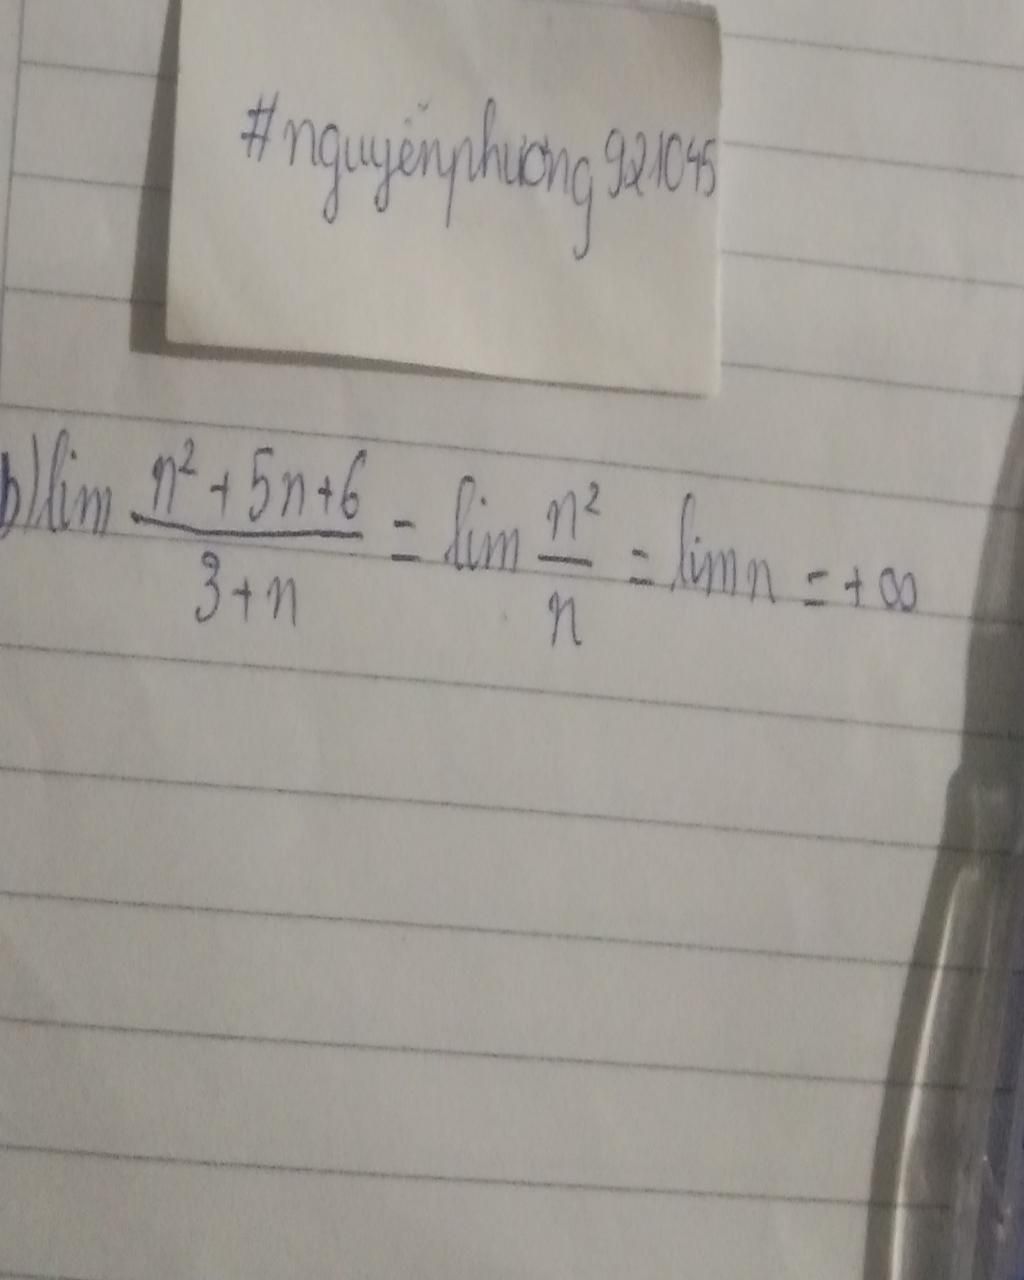 #nguyễnphương921045
b) lim (n² + 5n + 6)/(3 + n) = lim n²/n = lim n = +∞